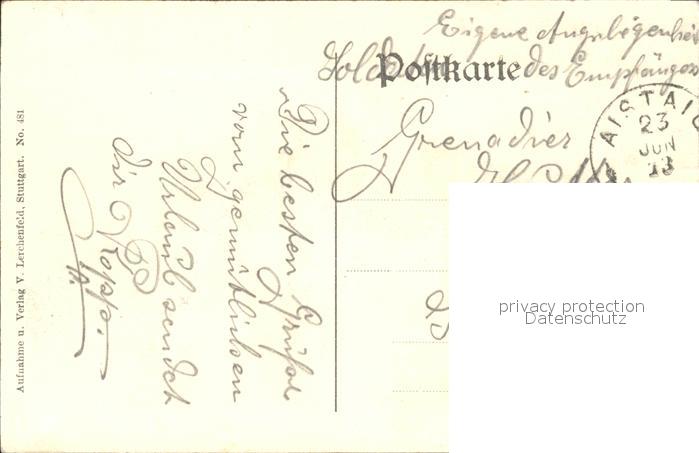 Eigene Angelegenheit
Soldat des Empfängers
Postkarte
Grenadier
AISTAIG
23
JUN
13
Die besten Grüße
vom gemütlichen
Urlaub sendet
dir
privacy protection
Datenschutz
Aufnahme u. Verlag V. Lerchenfeld, Stuttgart. No. 481